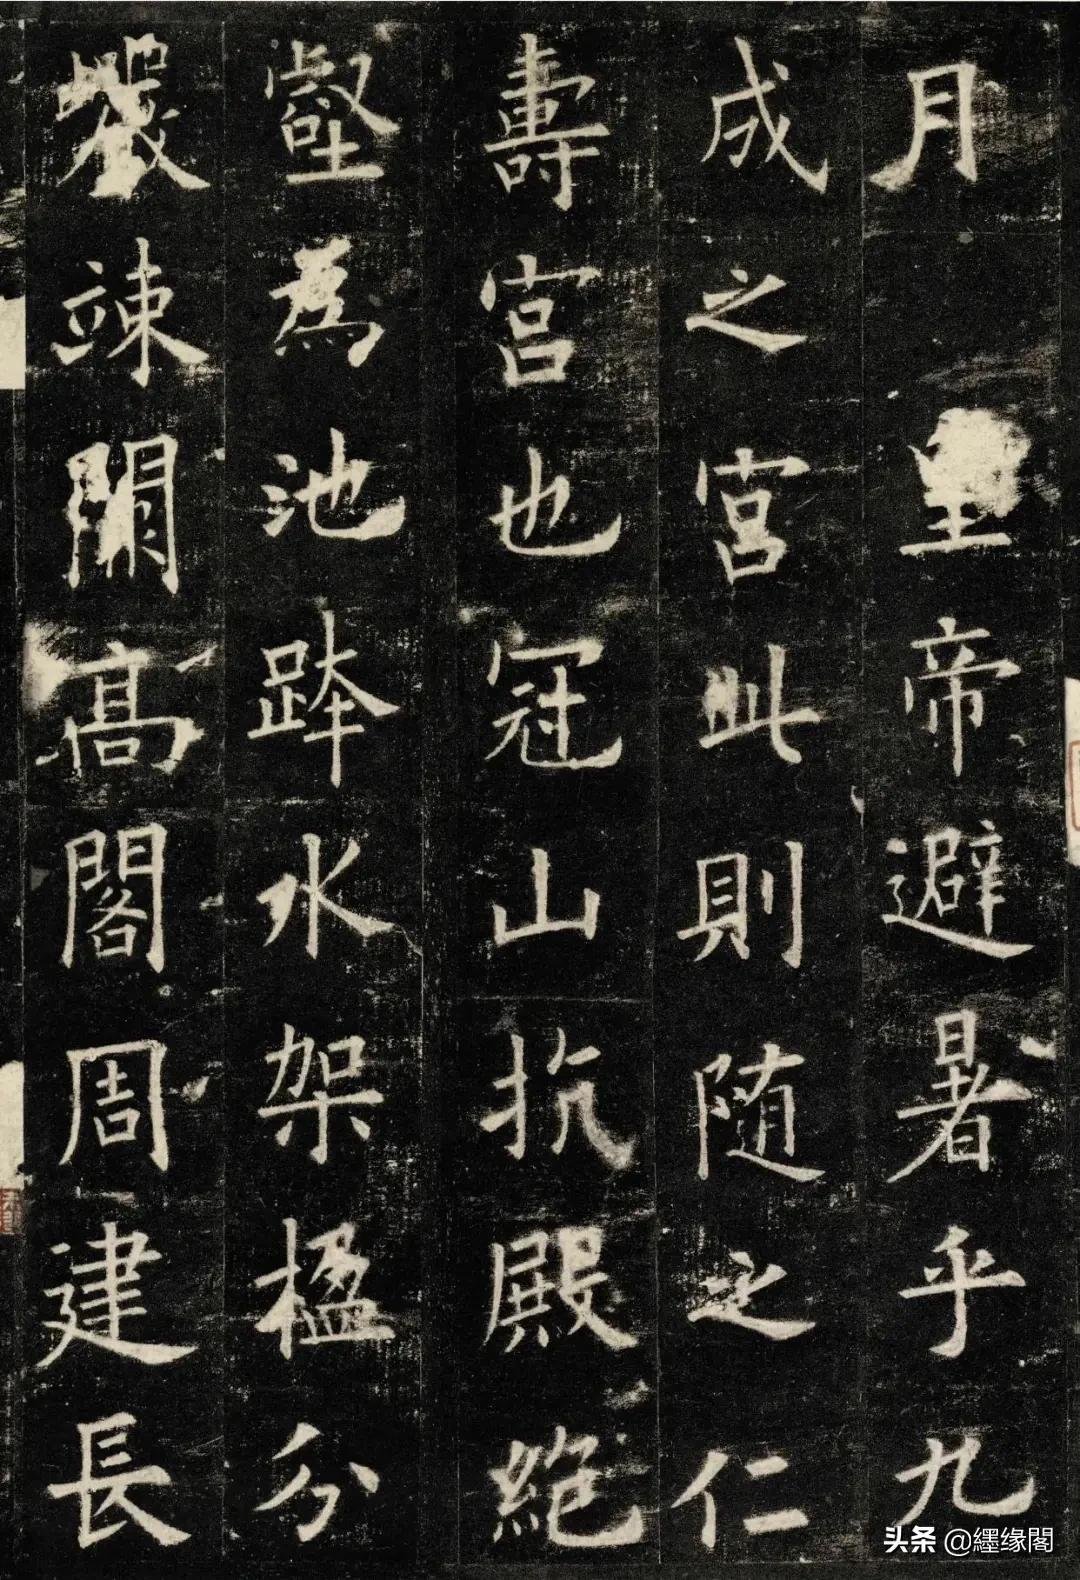 月　皇帝避暑乎九
成之宮此則随之仁
壽宮也冠山抗殿絶
壑為池跨水架楹分
巖竦闕髙閣周建長
头条 @纆缘閣